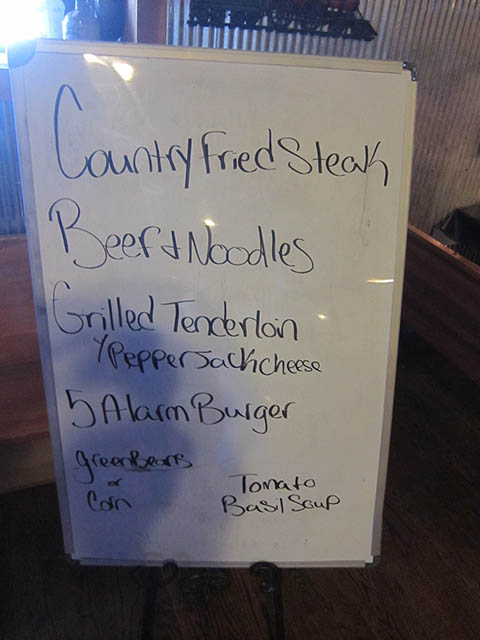 Country Fried Steak
Beef & Noodles
Grilled Tenderloin
w/ Pepper Jack cheese
5 Alarm Burger
green Beans
or
Corn
Tomato
Basil Soup